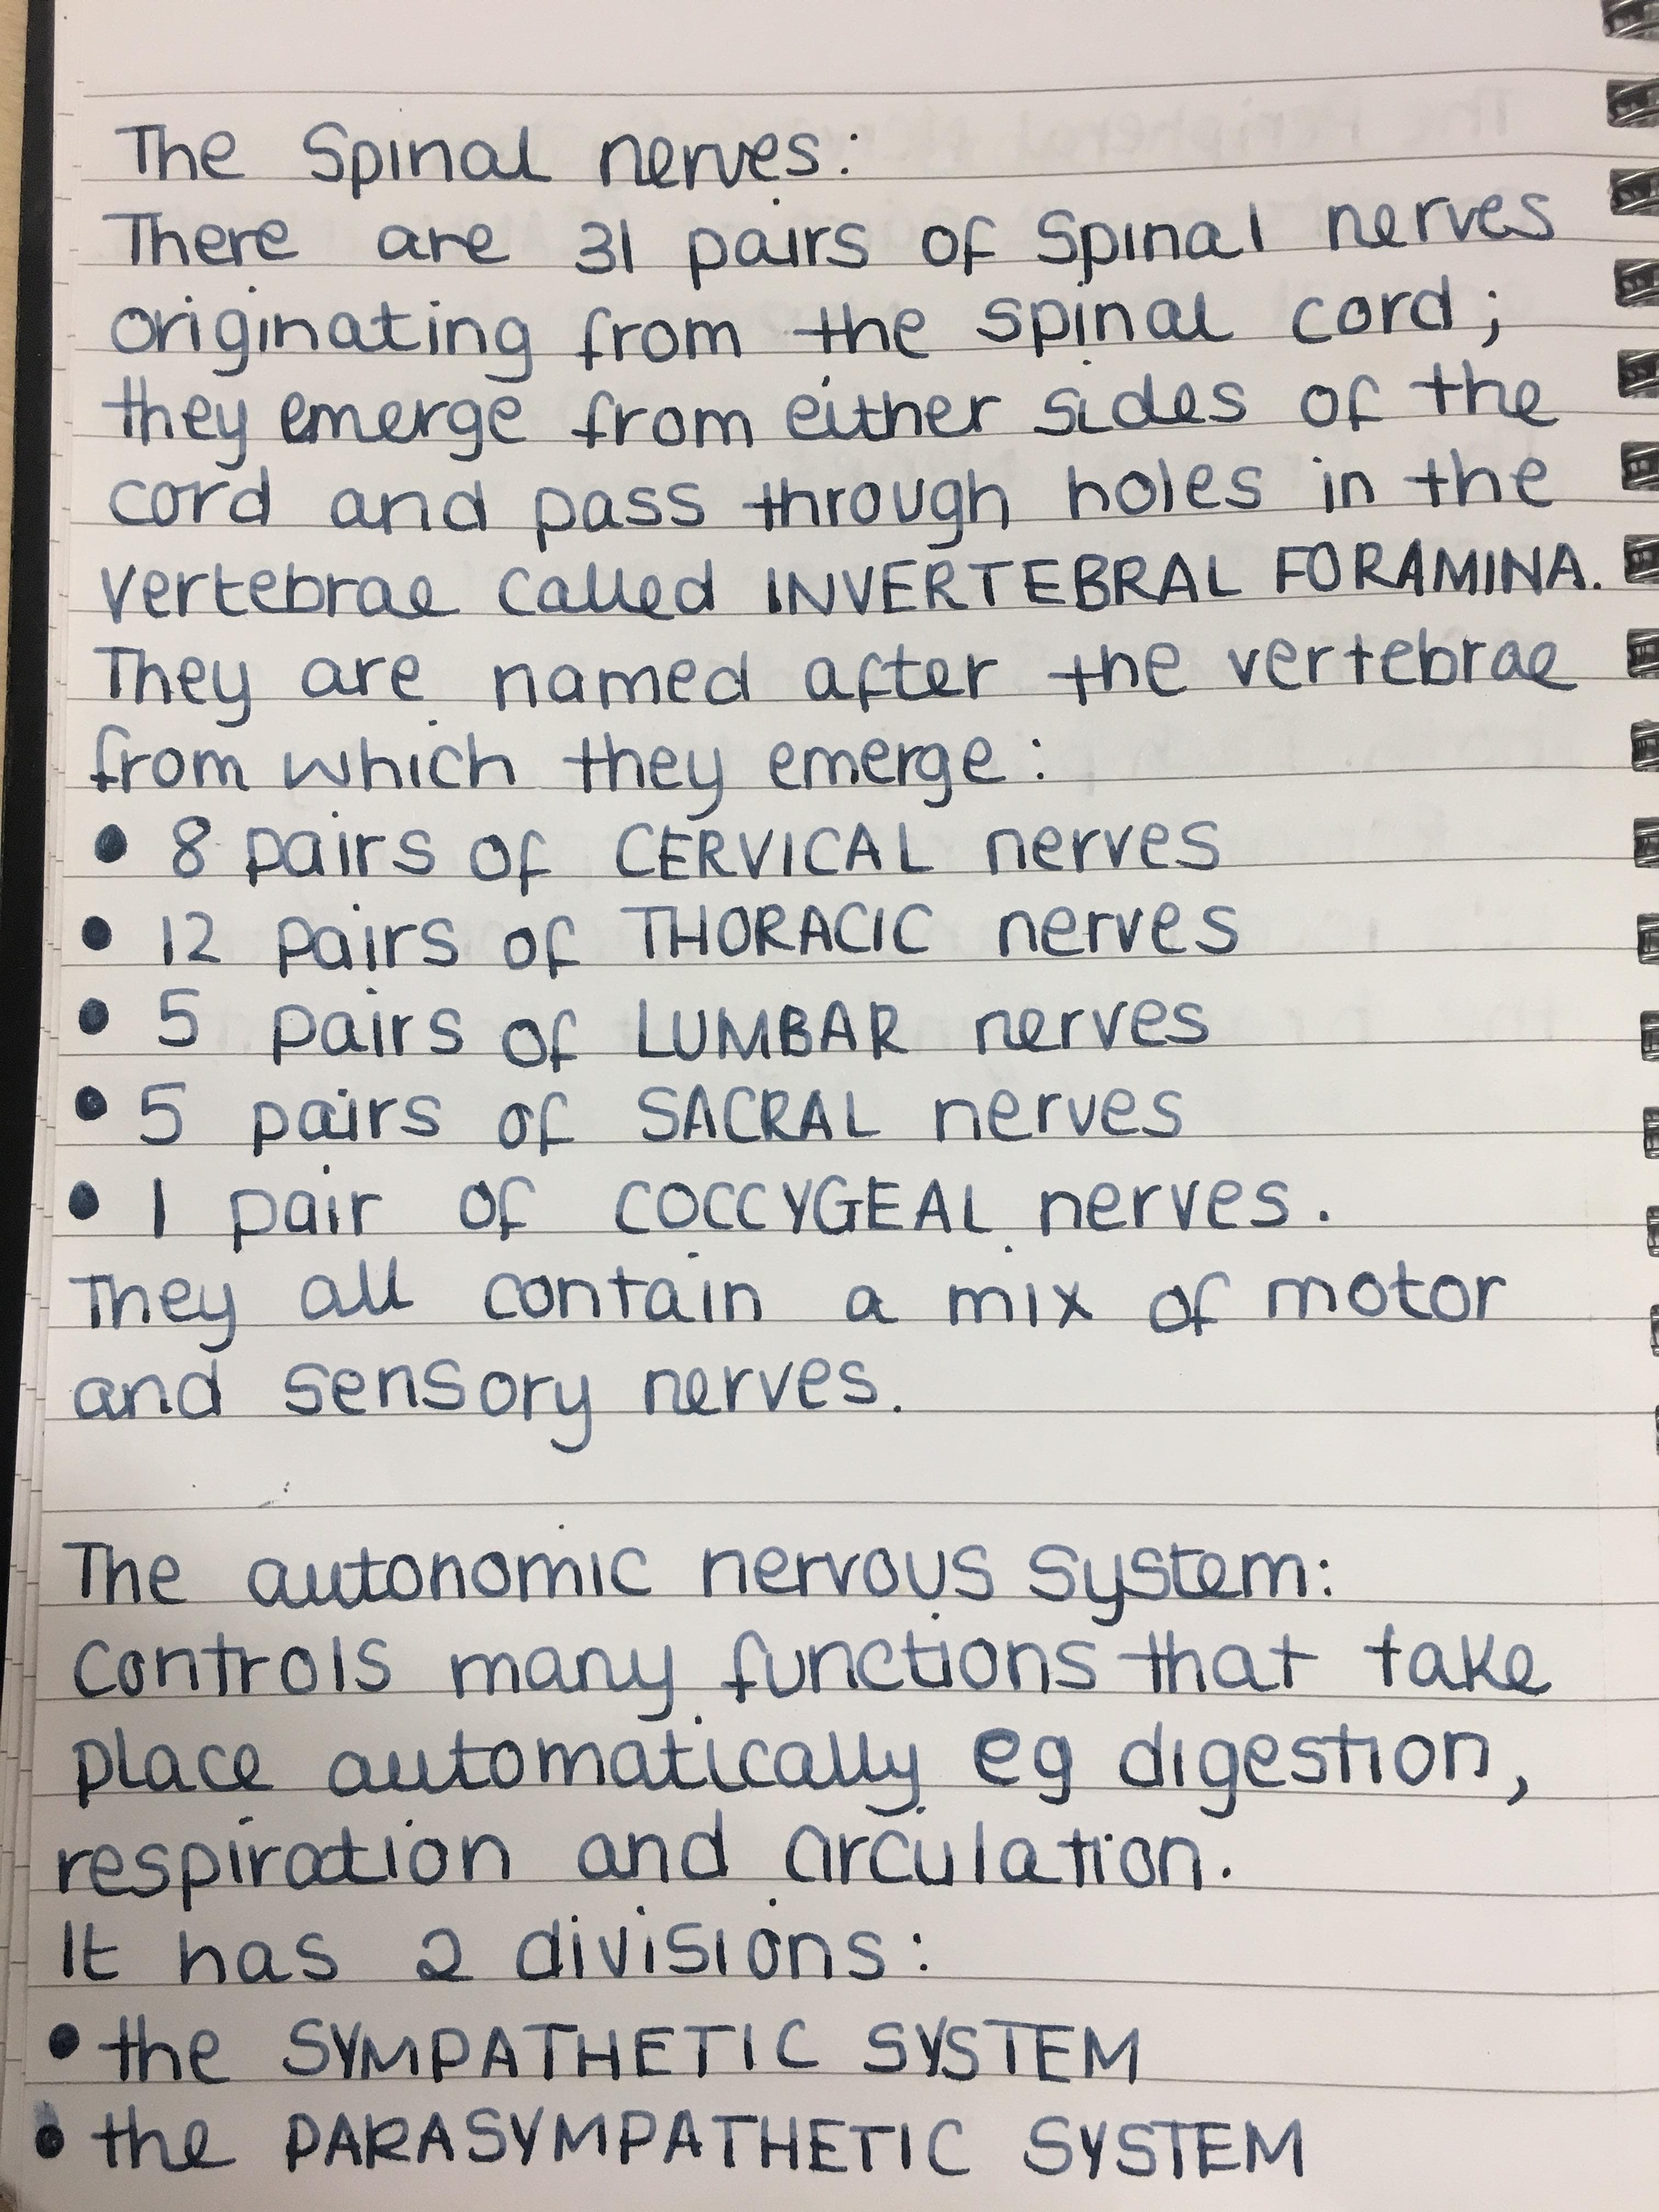 The Spinal nerves:
There are 31 pairs of spinal nerves
originating from the spinal cord;
they emerge from either sides of the
cord and pass through holes in the
vertebrae called INVERTEBRAL FORAMINA.
They are named after the vertebrae
from which they emerge:
• 8 pairs of CERVICAL nerves
• 12 pairs of THORACIC nerves
• 5 pairs of LUMBAR nerves
• 5 pairs of SACRAL nerves
• 1 pair of COCCYGEAL nerves.
They all contain a mix of motor
and sensory nerves.
The autonomic nervous system:
Controls many functions that take
place automatically eg digestion,
respiration and circulation.
It has 2 divisions:
• the SYMPATHETIC SYSTEM
• the PARASYMPATHETIC SYSTEM